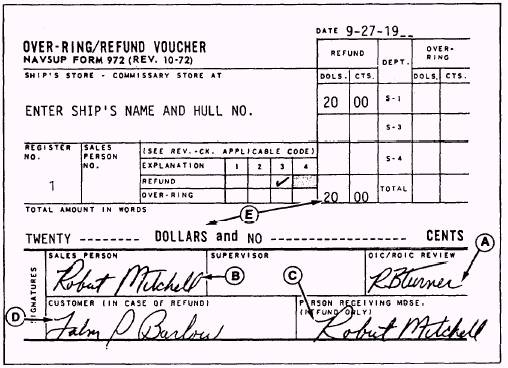 DATE 9-27-19__
OVER-RING/REFUND VOUCHER
NAVSUP FORM 972 (REV. 10-72)
SHIP'S STORE - COMMISSARY STORE AT
REFUND DEPT. OVER-RING
DOLS. CTS. DOLS. CTS.
ENTER SHIP'S NAME AND HULL NO.
20 00 S-1
S-3
S-4
REGISTER NO. SALES PERSON NO. (SEE REV.-CK. APPLICABLE CODE)
EXPLANATION 1 2 3 4
REFUND ✓
1 OVER-RING
20 00 TOTAL
TOTAL AMOUNT IN WORDS
E
TWENTY -------- DOLLARS and NO -------------- CENTS
A
SIGNATURES
SALES PERSON SUPERVISOR OIC/ROIC REVIEW
Robert Mitchell B C RBTurner
CUSTOMER (IN CASE OF REFUND) PERSON RECEIVING MDSE. (REFUND ONLY)
D P Barlow Robert Mitchell